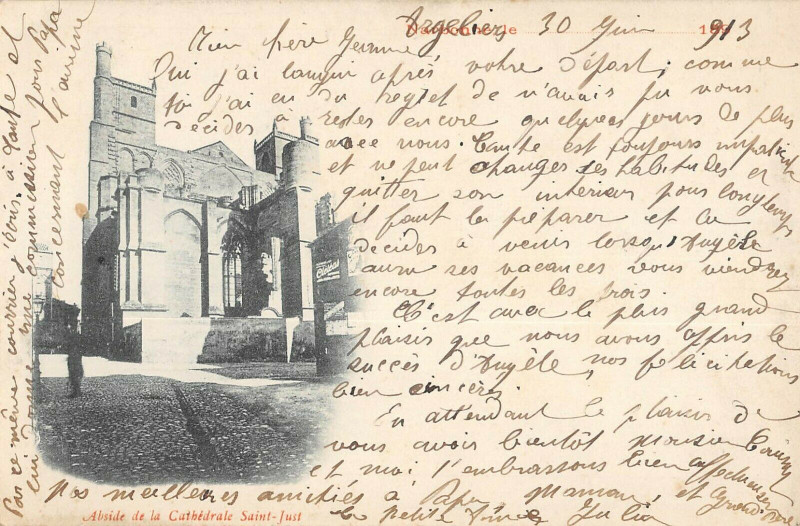 Narbonne le 189
Argeliers 30 Juin 913
Mien chère Jeanne
Qui j'ai langui après votre départ, comme
toi j'ai eu du regret de n'avais pu vous
décides à restes encore quelques jours de plus
avec nous. Tante est toujours impatiente
et ne peut changer ses habitudes et
quitter son intérieur pour longtemps
il faut la préparer et la
décides à venir lorsqu'Angèle
aura ses vacances vous viendrez
encore toutes les trois.
C'est avec le plus grand
plaisir que nous avons appris le
succès d'Angèle, nos félicitations
bien sincères.
En attendant le plaisir de
vous avoir bientôt
et moi t'embrassons bien affectueusement
Nos meilleures amitiés à Papa, Maman, et Grand-père
la petite Julie
Par ce même courrier j'écris à Tante et
lui donne une commission pour Papa
concernant l'avoine
Abside de la Cathédrale Saint-Just